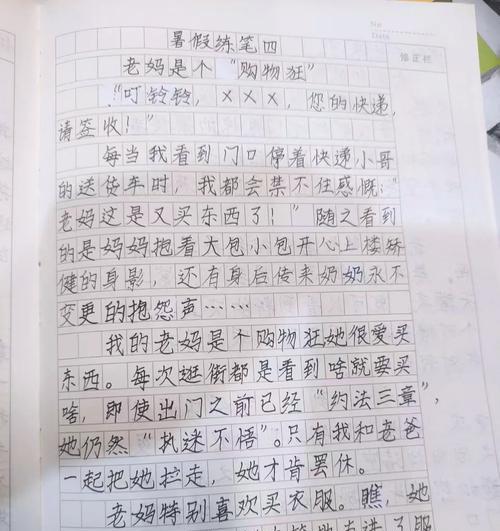 No
Date
修正栏
暑假练笔四
老妈是个“购物狂”
“叮铃铃，×××，您的快递，
请签收！”
每当我看到门口停着快递小哥
的送货车时，我都会禁不住感慨：“
老妈这是又买东西了！”随之看到
的是妈妈抱着大包小包开心上楼矫
健的身影，还有身后传来奶奶永不
变更的抱怨声……
我的老妈是个购物狂她很爱买
东西。每次逛街都是看到啥就要买
啥，即使出门之前已经“约法三章”，
她仍然“执迷不悟”。只有我和老爸
一起把她拦走，她才肯罢休。
老妈特别喜欢买衣服。瞧，她